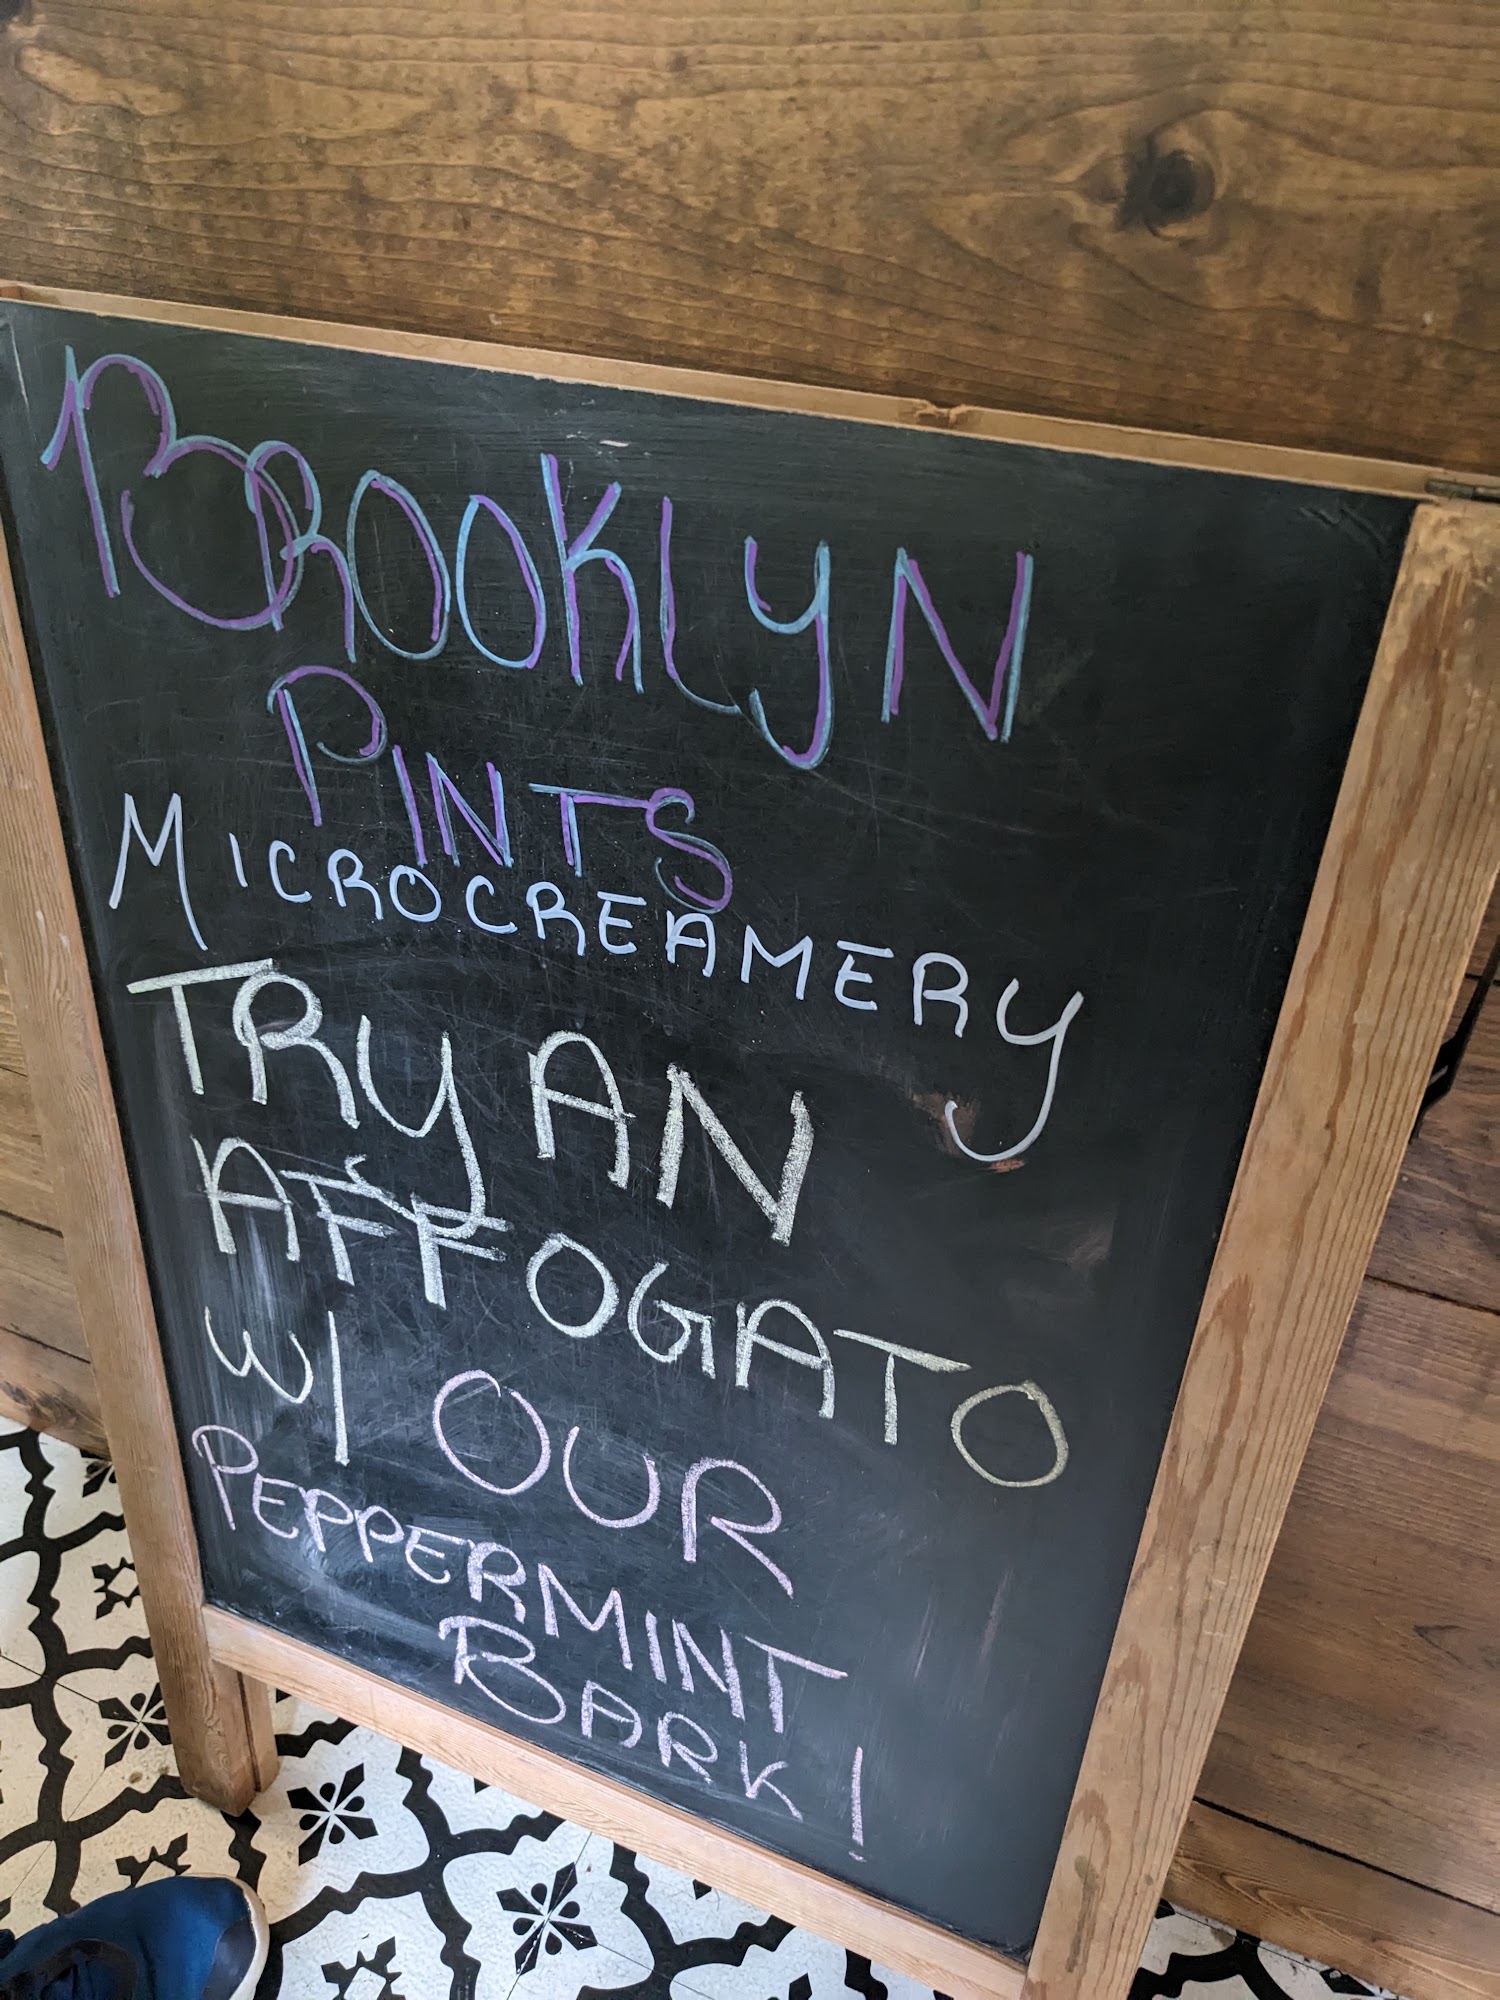 BROOKLYN
PINTS
MICROCREAMERY
TRY AN
AFFOGATO
W/ OUR
PEPPERMINT
BARK!